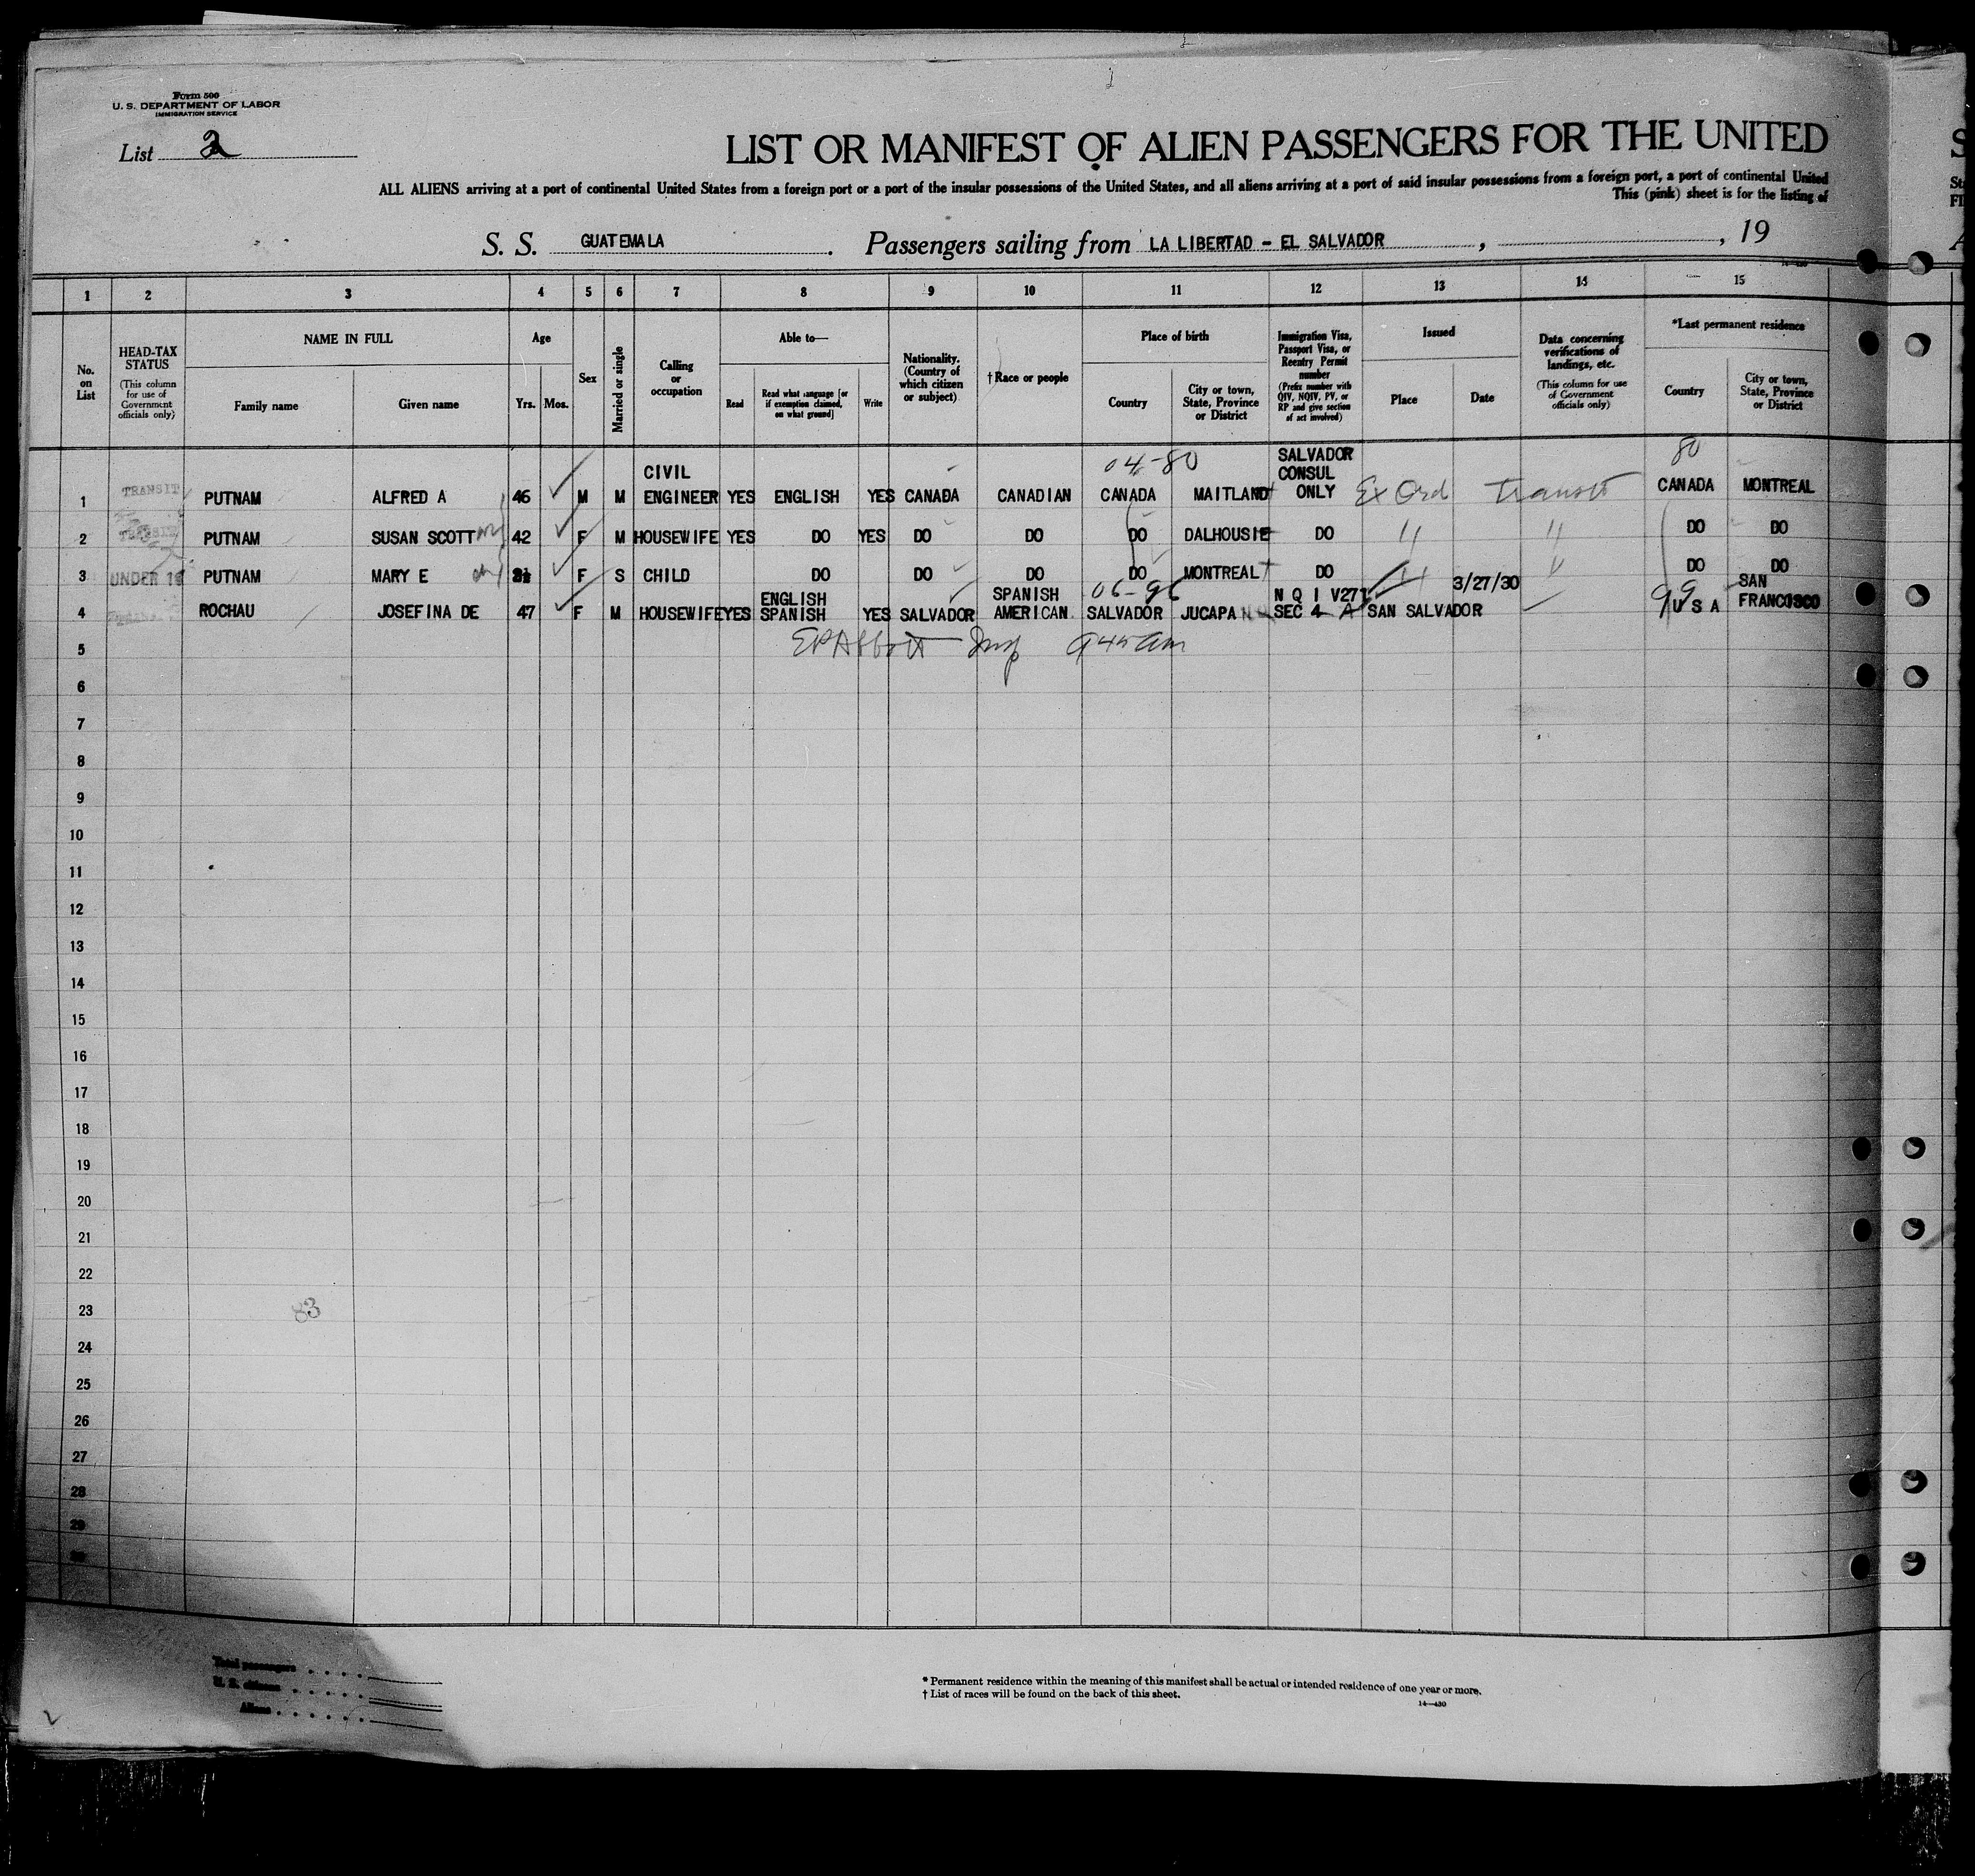 Form 500
U. S. DEPARTMENT OF LABOR
IMMIGRATION SERVICE
List 2
LIST OR MANIFEST OF ALIEN PASSENGERS FOR THE UNITED
ALL ALIENS arriving at a port of continental United States from a foreign port or a port of the insular possessions of the United States, and all aliens arriving at a port of said insular possessions from a foreign port, a port of continental United
This (pink) sheet is for the listing of
S. S. GUATEMALA. Passengers sailing from LA LIBERTAD - EL SALVADOR, , 19
1 2 3 4 5 6 7 8 9 10 11 12 13 14 15
No. on List
HEAD-TAX STATUS (This column for use of Government officials only)
NAME IN FULL
Family name Given name
Age
Yrs. Mos.
Sex
Married or single
Calling or occupation
Able to—
Read Read what language [or if exemption claimed, on what ground] Write
Nationality. (Country of which citizen or subject)
† Race or people
Place of birth
Country City or town, State, Province or District
Immigration Visa, Passport Visa, or Reentry Permit number (Prefix number with QIV, NQIV, PV, or RP and give section of act involved)
Issued
Place Date
Data concerning verifications of landings, etc. (This column for use of Government officials only)
*Last permanent residence
Country City or town, State, Province or District
04-80 80
1 TRANSIT PUTNAM ALFRED A 46 M M CIVIL ENGINEER YES ENGLISH YES CANADA CANADIAN CANADA MAITLAND SALVADOR CONSUL ONLY Ex Ord transit CANADA MONTREAL
2 PUTNAM SUSAN SCOTT 42 F M HOUSEWIFE YES DO YES DO DO DO DALHOUSIE DO " " DO DO
3 UNDER 16 PUTNAM MARY E F S CHILD DO DO DO DO MONTREAL DO " " DO DO
06-96 99
4 ROCHAU JOSEFINA DE 47 F M HOUSEWIFE YES ENGLISH SPANISH YES SALVADOR SPANISH AMERICAN SALVADOR JUCAPA N Q I V271 SEC 4 A SAN SALVADOR 3/27/30 U S A SAN FRANCISCO
5 EP Abbott Insp 945 am
6
7
8
9
10
11
12
13
14
15
16
17
18
19
20
21
22
23 83
24
25
26
27
28
29
30
Total passengers
U. S. citizens
Aliens
* Permanent residence within the meaning of this manifest shall be actual or intended residence of one year or more.
† List of races will be found on the back of this sheet.
14—430